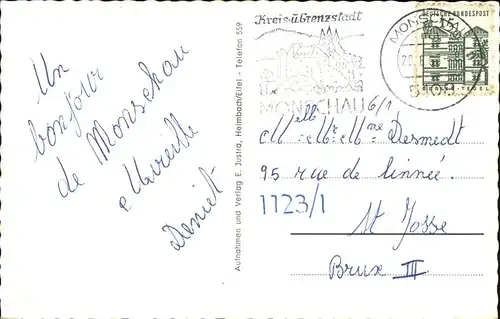 Un
bonjour
de Monschau
Mireille
Daniel
Aufnahmen und Verlag E. Justra, Heimbach/Eifel - Telefon 559
Kreis-u.Grenzstadt
MONSCHAU
MONSCHAU
DEUTSCHE BUNDESPOST
BERLIN-TEGEL
6/1
Mlle Mr Mme Desmedt
95 rue de linnée.
1123/1
St Josse
Brux III